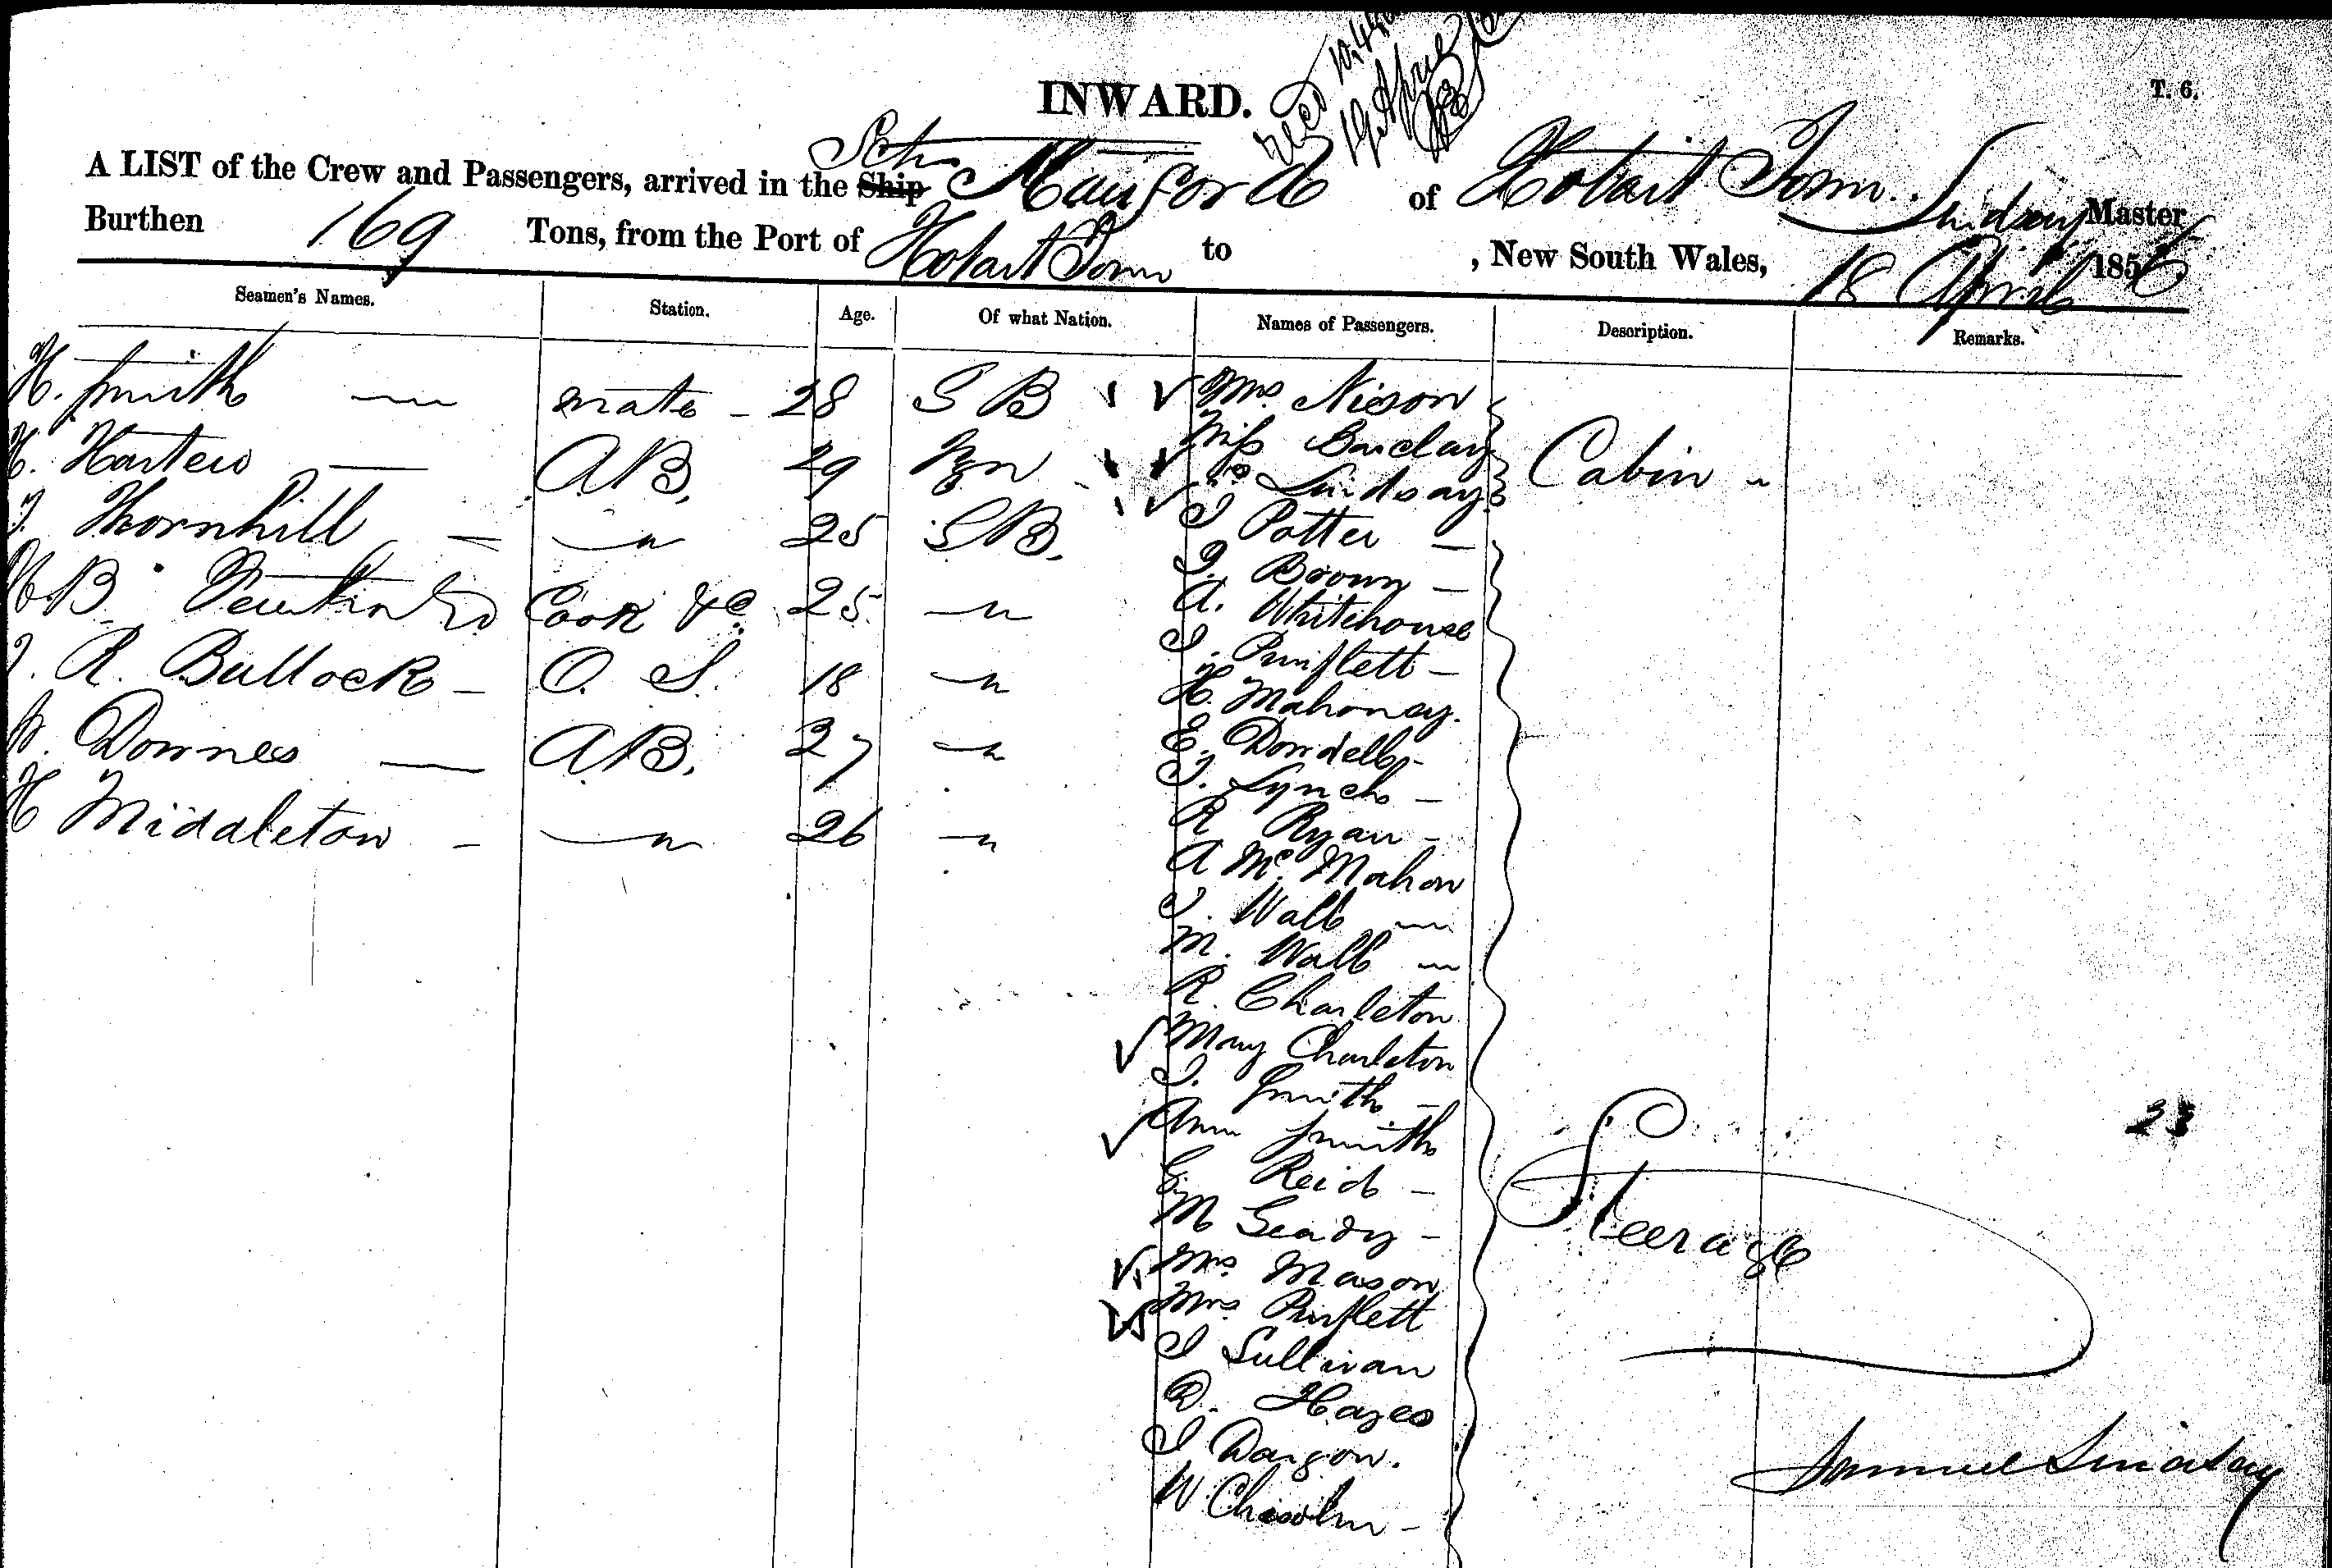 INWARD.
T. 6.
Recd
19 April
A LIST of the Crew and Passengers, arrived in the Ship Schr of Hobart Town Lindsay Master
Burthen 169 Tons, from the Port of Hobart Town to , New South Wales, 18 April 1856
Seamen's Names. Station. Age. Of what Nation. Names of Passengers. Description. Remarks.
H. Smith — mate - 28 S B
Hartew — AB, 29
Thornhill — — " 25 S B.
Cook &c. 25 — "
R. Bullock - O. S. 18 — "
Downes — AB, 27 — "
H Middleton - — " 26 — "
Mrs. Nixon
Miss Barclay
Do Lindsay
Cabin "
J Potter —
J. Brown —
A. Whitehouse
J. Purflett —
H. Mahoney.
E. Dowdell -
J. Lynch —
R Ryan -
A McMahon
J. Wall —
M. Wall —
R. Charleton
Mary Charleton
J. Smith —
Ann Smith
G. Reid —
M Geady -
Mrs. Mason
Mrs. Purflett
J Sullivan
D. Hayes
J Dargon.
W. Chisolm -
Steerage
23
Samuel Lindsay